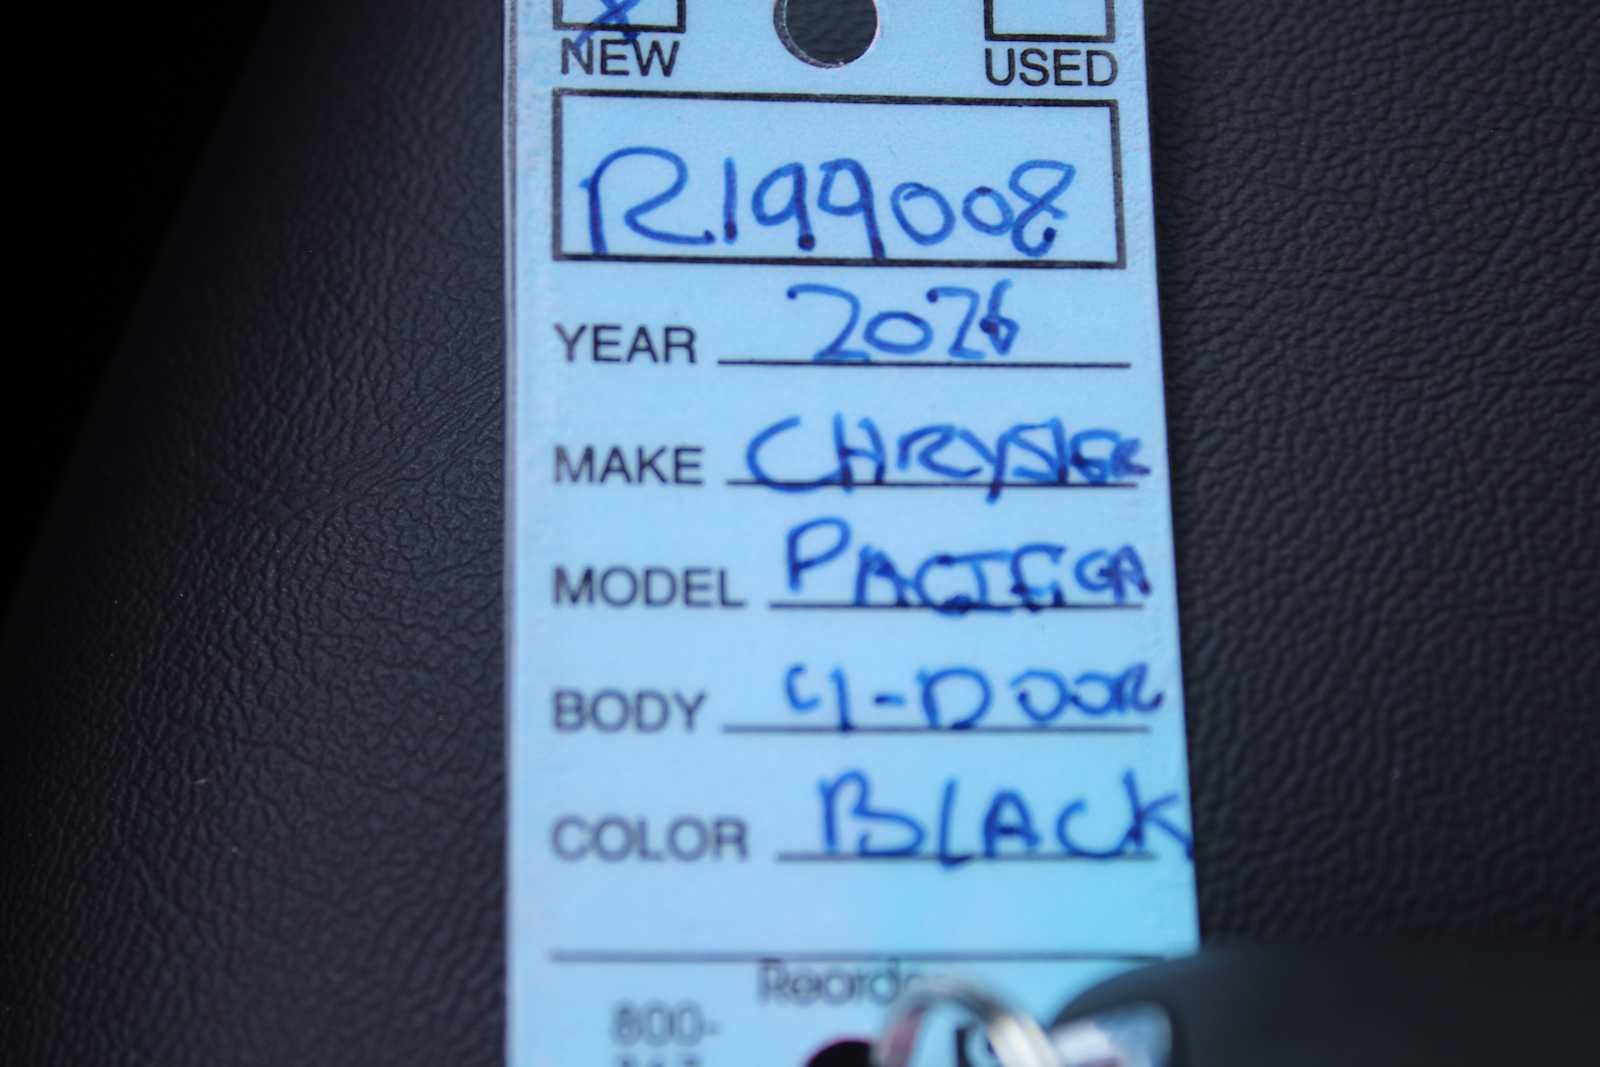 NEW USED
R199008
YEAR 2026
MAKE CHRYSLER
MODEL PACIFICA
BODY 4-DOOR
COLOR BLACK
800-